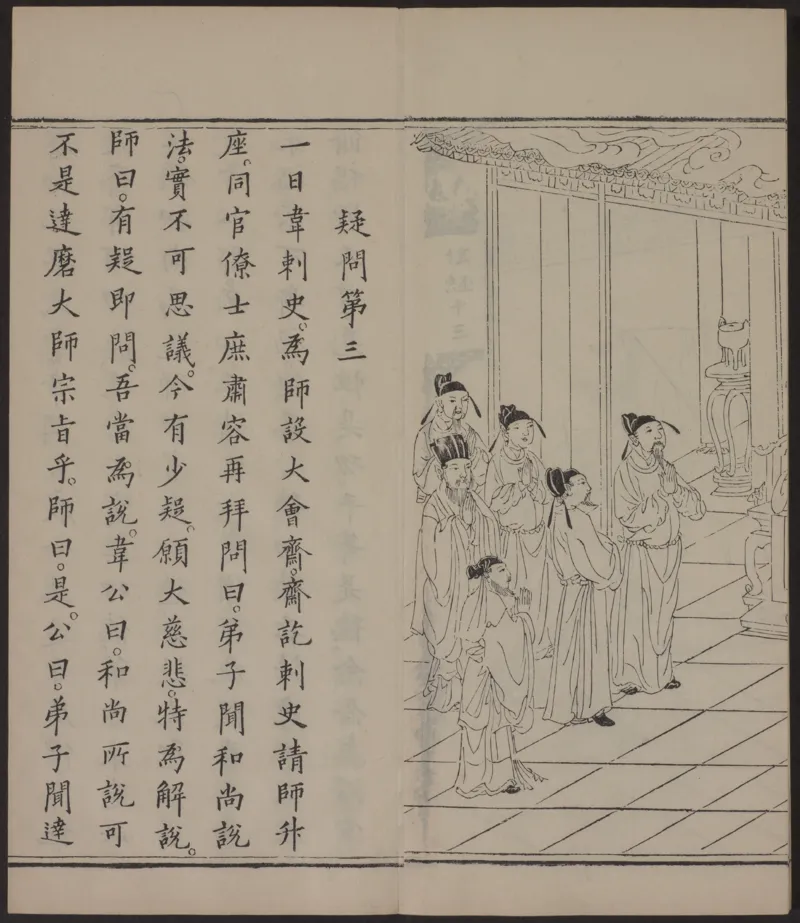 疑問第三
一日韋刺史。為師設大會齋。齋訖刺史請師升
座。同官僚士庶肅容再拜問曰。弟子聞和尚說
法。實不可思議。今有少疑。願大慈悲。特為解說。
師曰。有疑即問。吾當為說。韋公曰。和尚所說可
不是達磨大師宗旨乎。師曰。是。公曰。弟子聞達